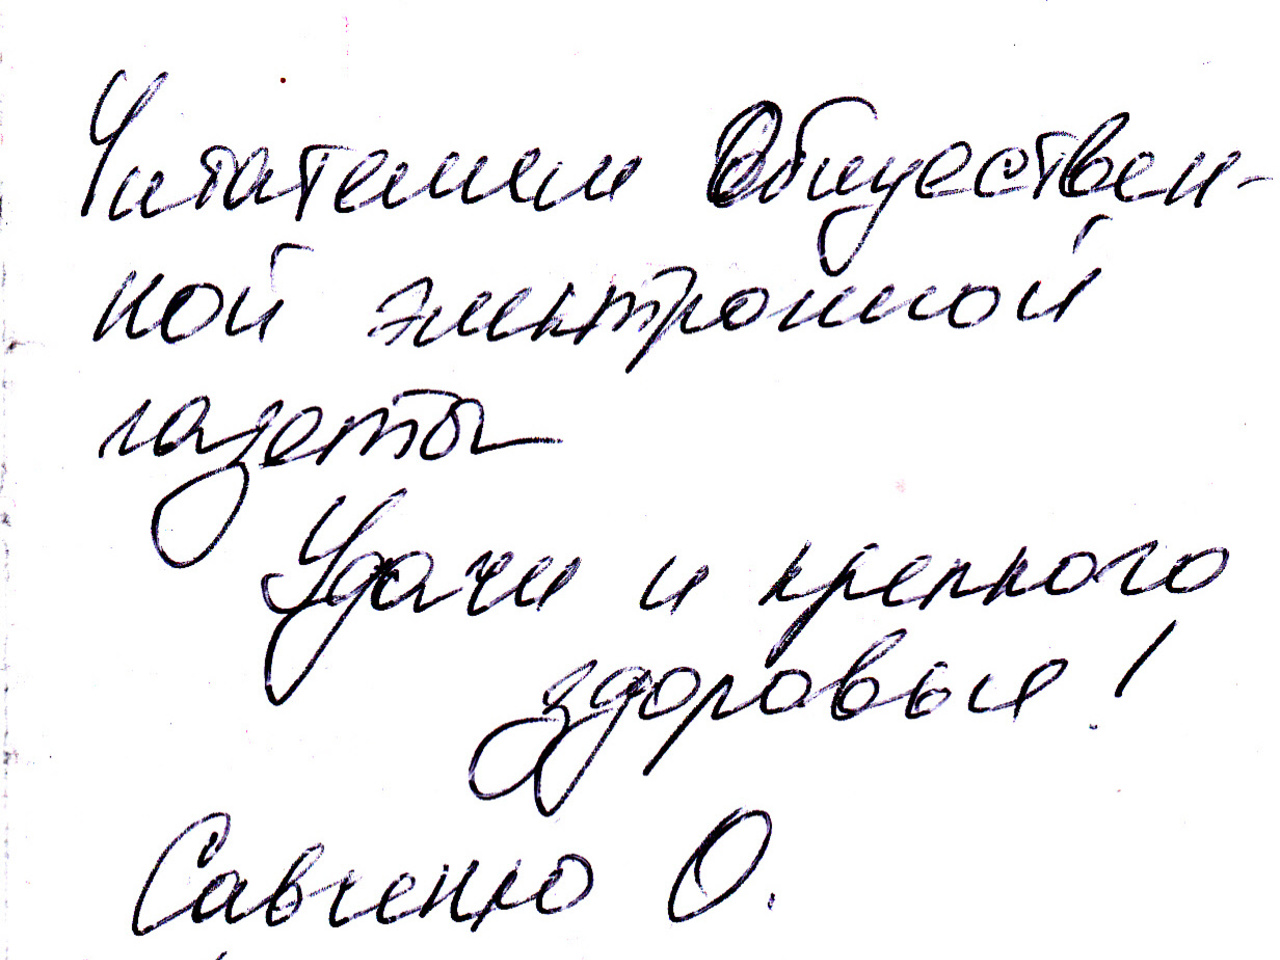 Читателям Обществен-
ной электронной
газеты
Удачи и крепкого
здоровья!
Савченко О.